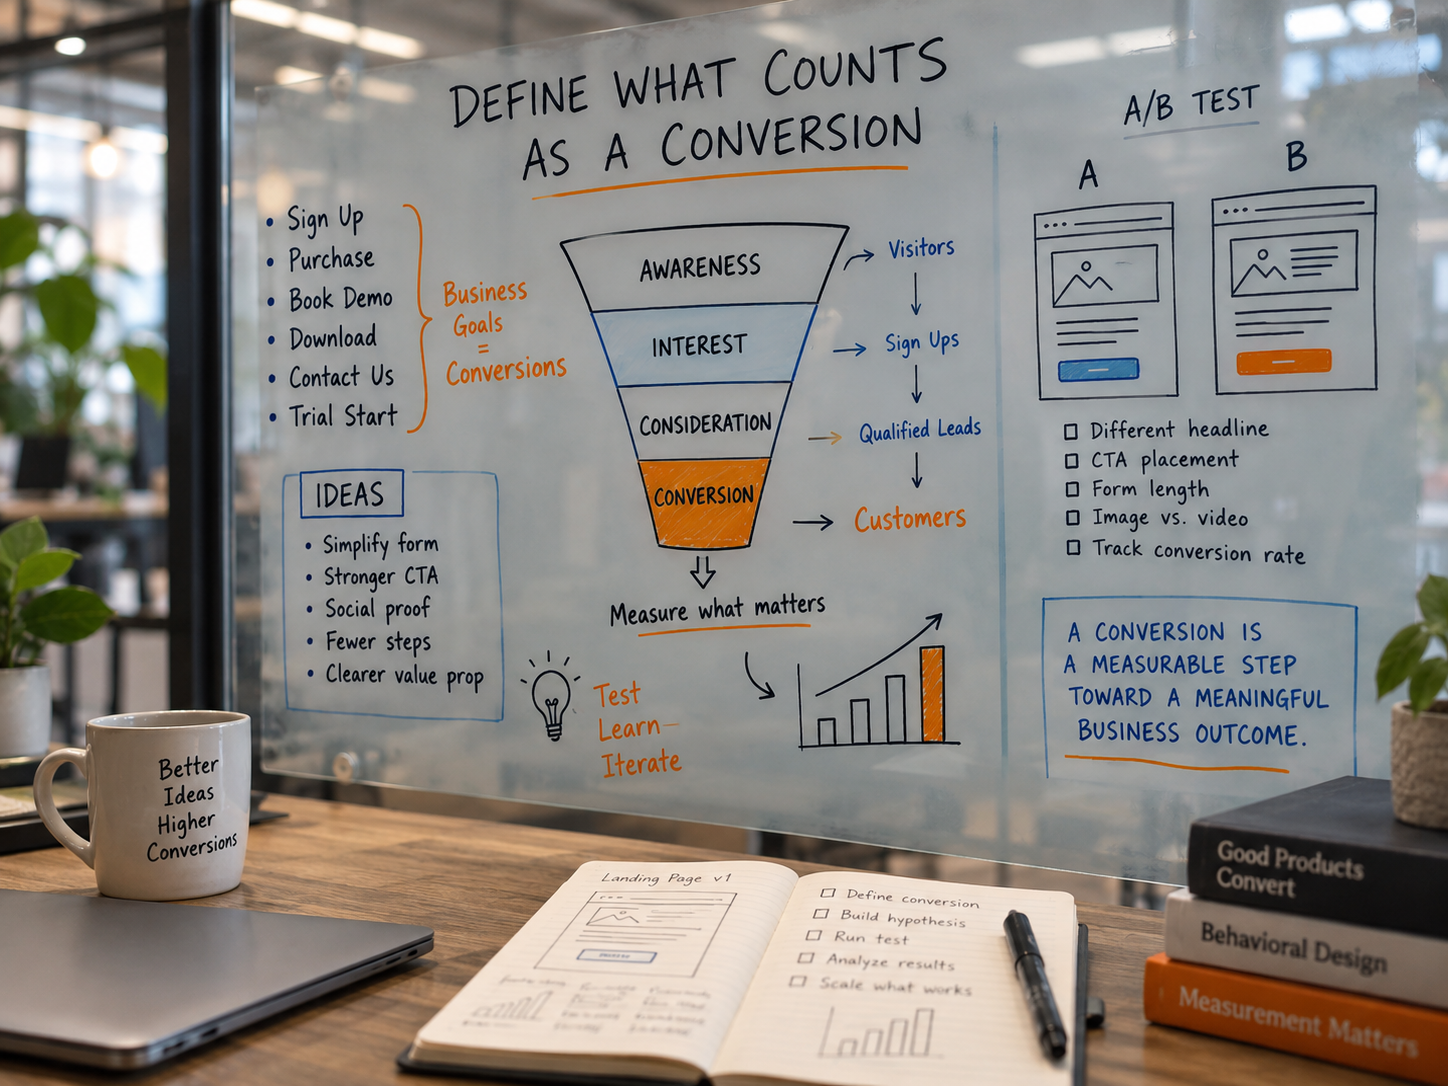 DEFINE WHAT COUNTS
AS A CONVERSION
• Sign Up
• Purchase
• Book Demo
• Download
• Contact Us
• Trial Start
Business
Goals
=
Conversions
IDEAS
• Simplify form
• Stronger CTA
• Social proof
• Fewer steps
• Clearer value prop
AWARENESS
INTEREST
CONSIDERATION
CONVERSION
Visitors
Sign Ups
Qualified Leads
Customers
Measure what matters
Test
Learn—
Iterate
A/B TEST
A
B
Different headline
CTA placement
Form length
Image vs. video
Track conversion rate
A CONVERSION IS
A MEASURABLE STEP
TOWARD A MEANINGFUL
BUSINESS OUTCOME.
Better
Ideas
Higher
Conversions
Landing Page v1
Define conversion
Build hypothesis
Run test
Analyze results
Scale what works
Good Products
Convert
Behavioral Design
Measurement Matters